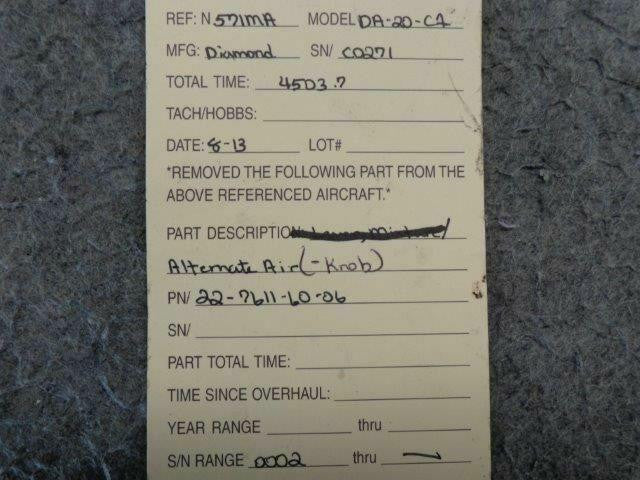 REF: N 571MA MODEL DA-20-C1
MFG: Diamond SN/ C0271
TOTAL TIME: 4503.7
TACH/HOBBS:
DATE: 8-13 LOT#
*REMOVED THE FOLLOWING PART FROM THE
ABOVE REFERENCED AIRCRAFT.*
PART DESCRIPTION
Alternate Air (-Knob)
PN/ 22-7611-60-06
SN/
PART TOTAL TIME:
TIME SINCE OVERHAUL:
YEAR RANGE thru
S/N RANGE 0002 thru —